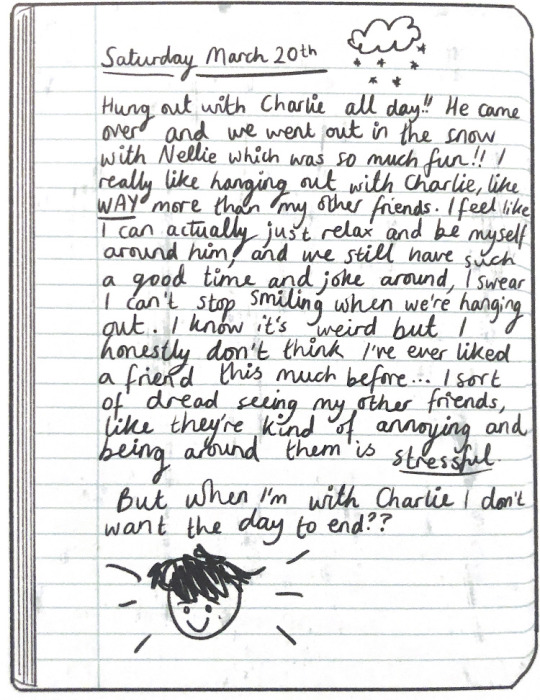 Saturday March 20th
Hung out with Charlie all day!! He came
over and we went out in the snow
with Nellie which was so much fun!! I
really like hanging out with Charlie, like
WAY more than my other friends. I feel like
I can actually just relax and be myself
around him, and we still have such
a good time and joke around, I swear
I can't stop smiling when we're hanging
out. I know it's weird but I
honestly don't think I've ever liked
a friend this much before... I sort
of dread seeing my other friends,
like they're kind of annoying and
being around them is stressful.
But when I'm with Charlie I don't
want the day to end??